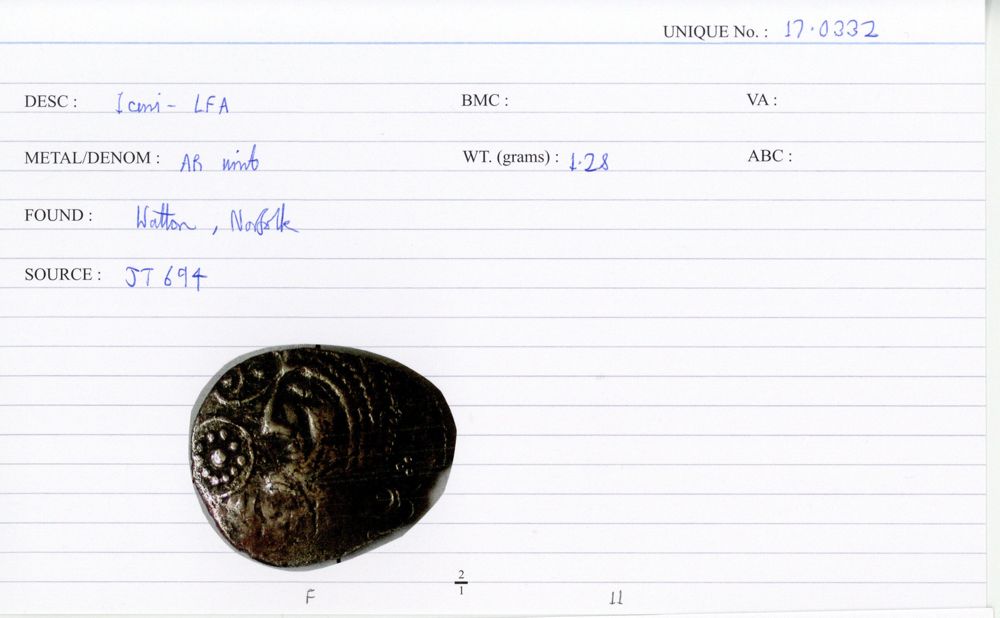 UNIQUE No. : 17.0332
DESC : Iceni - LFA BMC : VA :
METAL/DENOM : AR unit WT. (grams) : 1.28 ABC :
FOUND : Watton, Norfolk
SOURCE : JT 694
2
1
F 11